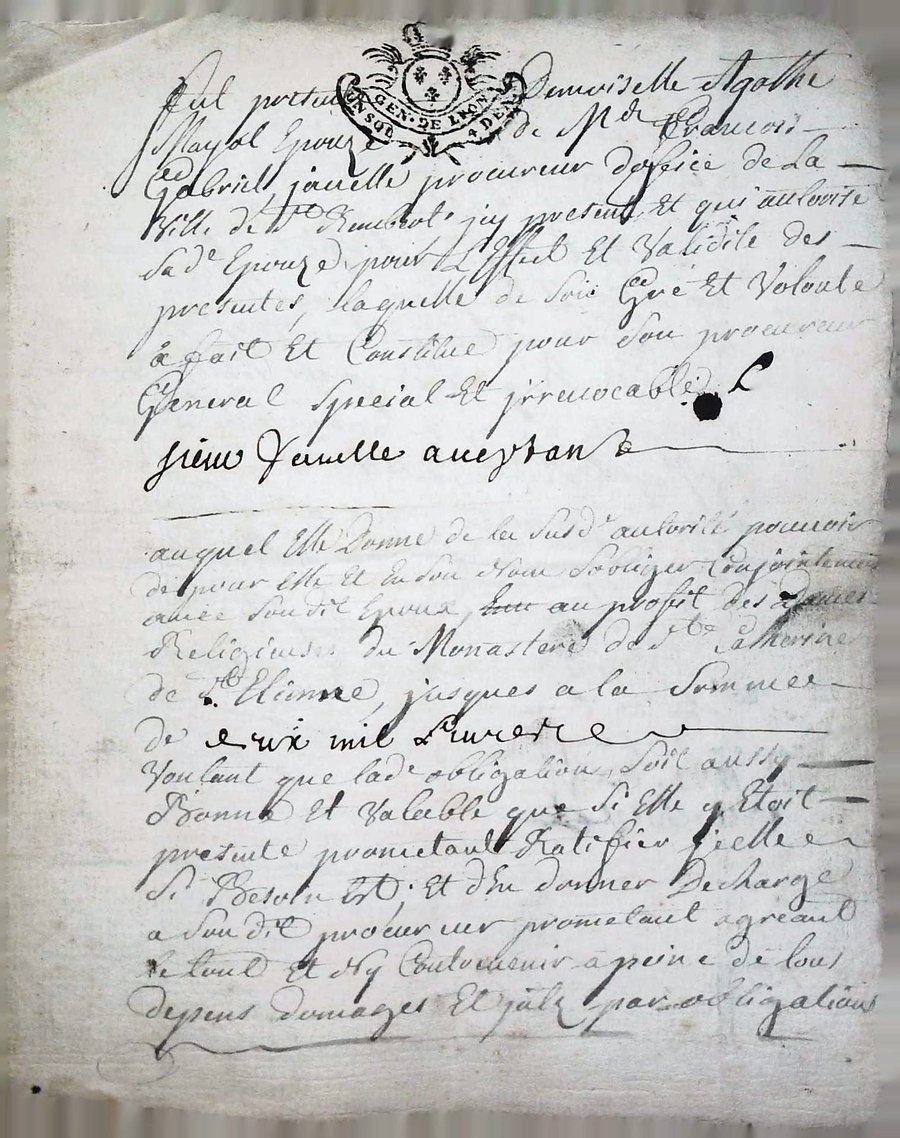 GEN. DE LYON
UN SOL 4 DEN.
Fut presente Demoiselle Agathe
Mayol Epouze de Mr François
Gabriel jauelle procureur doffice de La
Ville de St Rembert jcy present Et qui autorise
sa de Epouze pour L'Effet Et Validité des
presentes, laquelle de son Gré Et Volonté
a fait Et Constitué pour son procureur
General special Et jrreuocable L
sieur
auquel Elle Donne de la susd autorité pouuoir
de pour Elle Et En son Nom sobliger Conjointement
auec son dit Epoux, au profit des dames
Religieuses du Monastere de Ste Catherine
de St Etienne, jusques a la somme
de deux mil Liures
Voulant que lad obligation soit aussy
Bonne Et Valable que si Elle y Etoit
presente prometant Ratifier jcelle
si Besoin Est, Et d'En donner Decharge
a son dit procureur prometant agréant
le tout Et N'y Contreuenir a peine de tous
depens domages Et par obligations